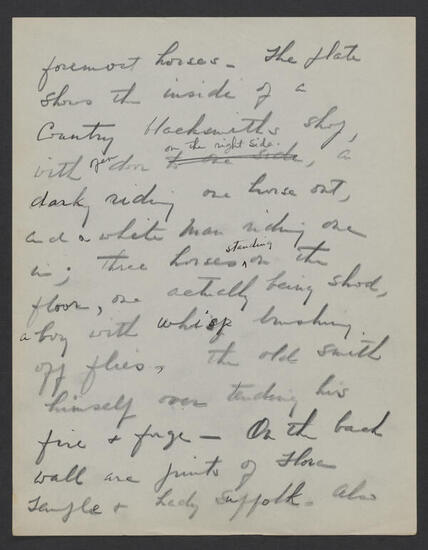 foremost horses - The plate
shows the inside of a
Country Blacksmith's shop,
on the right side.
with open door to one side, a
darky riding one horse out,
and a white man riding one
standing
in; three horses on the
floor, one actually being shod,
a boy with whisp brushing
off flies, the old smith
himself over tending his
fire & forge - On the back
wall are prints of Flora
Temple & Lady Suffolk. Also